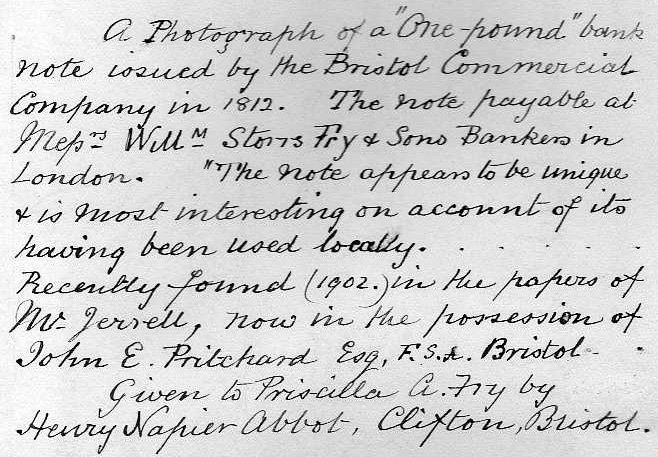 A Photograph of a "One-pound" bank
note issued by the Bristol Commercial
Company in 1812. The note payable at
Messrs Willm Storrs Fry & Sons Bankers in
London. "The note appears to be unique
& is most interesting on account of its
having been used locally. . . . . .
Recently found (1902.) in the papers of
Mr Jerrell, now in the possession of
John E. Pritchard Esq, F.S.A. Bristol - .
Given to Priscilla A. Fry by
Henry Napier Abbot, Clifton, Bristol.